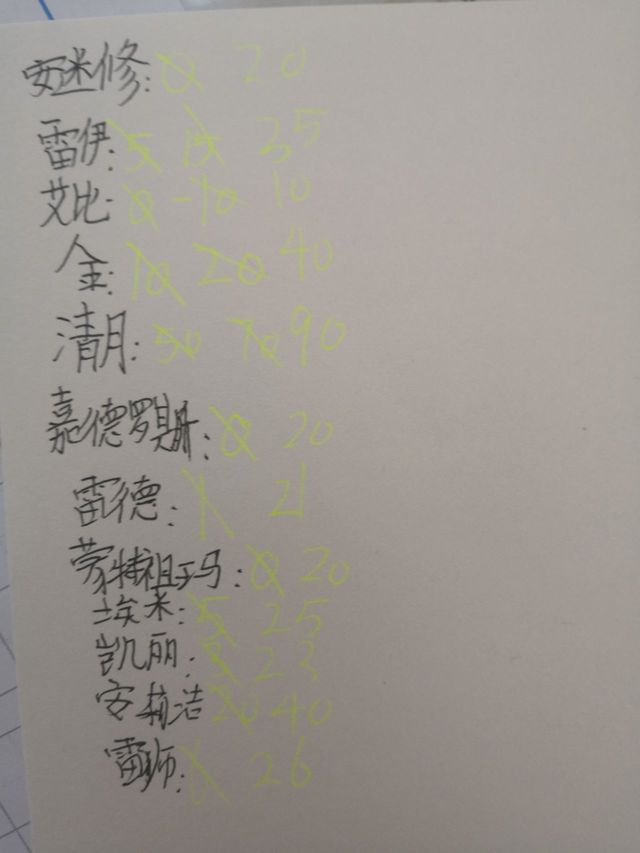 安迷修: 0 20
雷伊: 5 15 35
艾比: 0 -10 10
金: 10 20 40
清月: 50 70 90
嘉德罗斯: 0 20
雷德: 1 21
蒙特祖玛: 0 20
埃米: 5 25
凯丽: 3 23
安莉洁 20 40
雷狮: 26